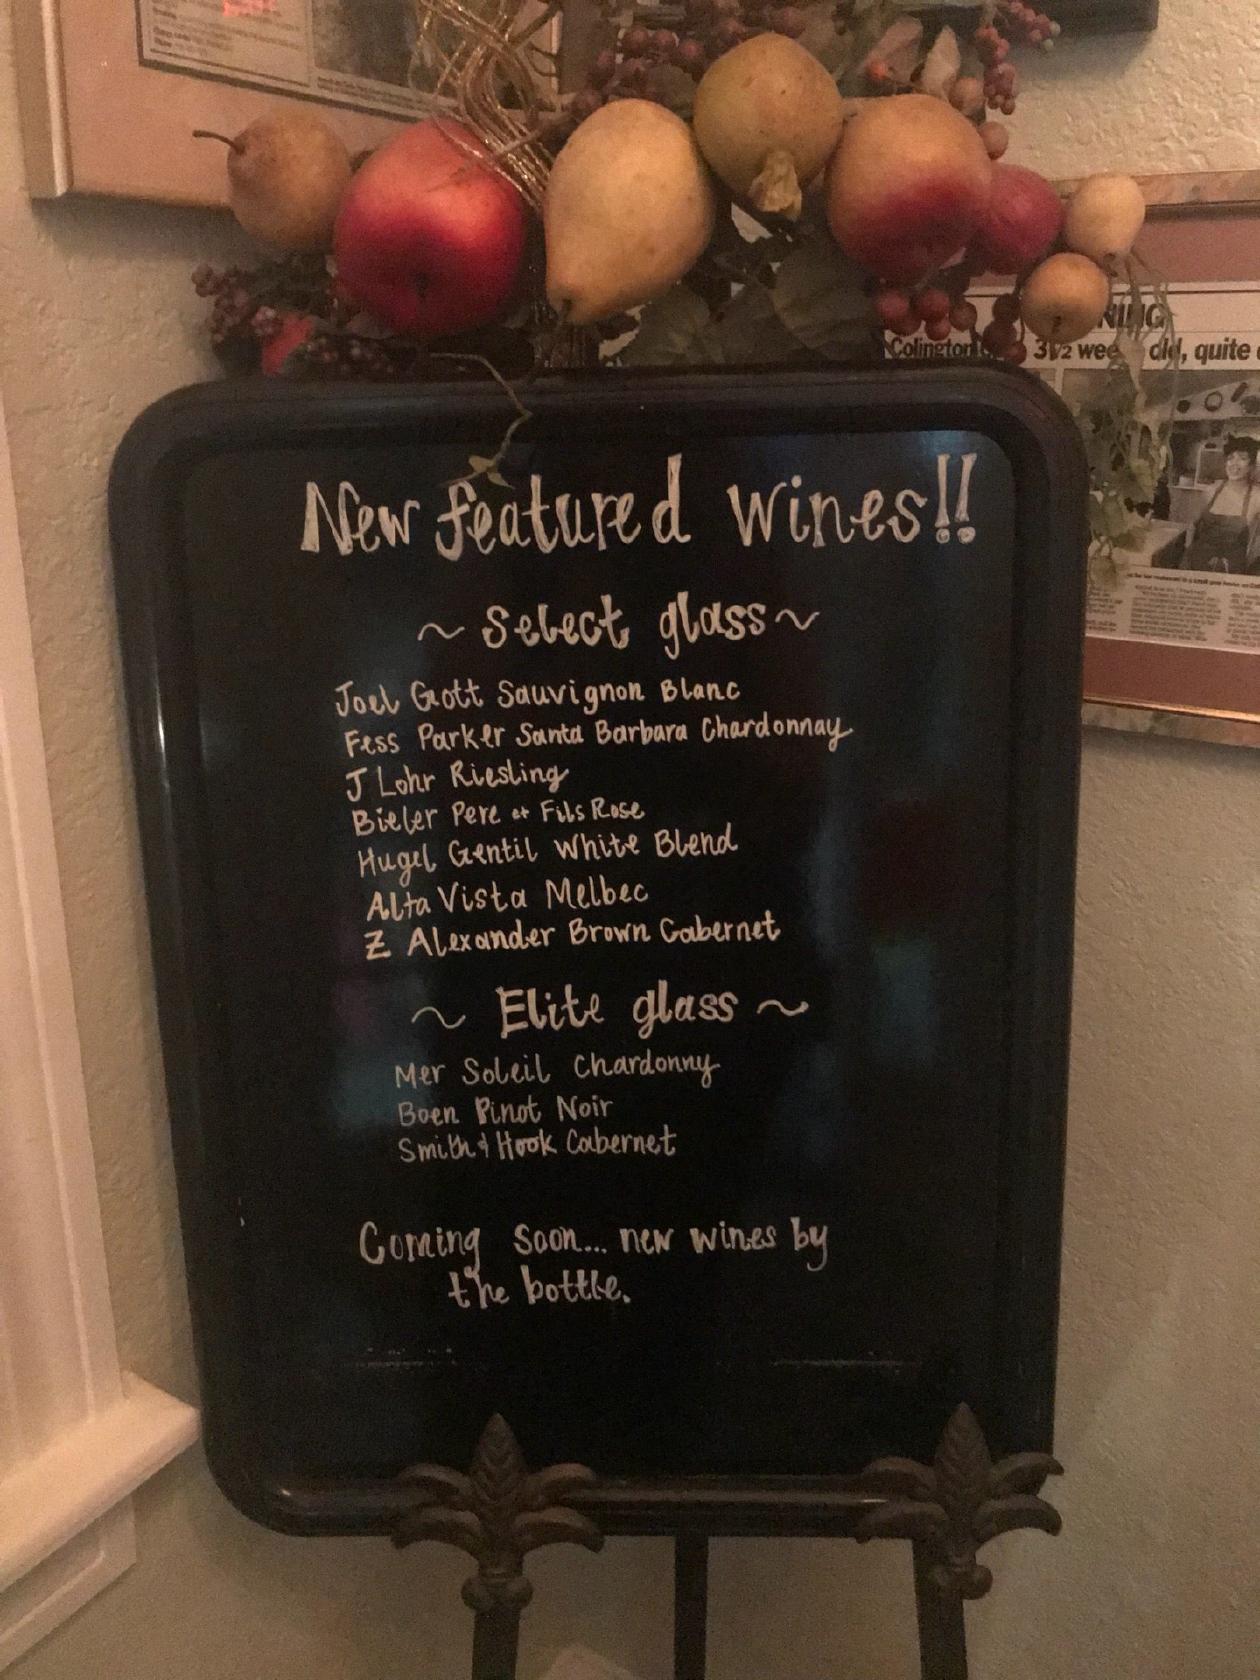 New featured wines!!
~ Select glass ~
Joel Gott Sauvignon Blanc
Fess Parker Santa Barbara Chardonnay
J Lohr Riesling
Bieler Pere et Fils Rose
Hugel Gentil White Blend
Alta Vista Melbec
Z Alexander Brown Cabernet
~ Elite glass ~
Mer Soleil Chardonny
Boen Pinot Noir
Smith & Hook Cabernet
Coming soon... new wines by
the bottle.
Colington
3 1/2 wee old, quite